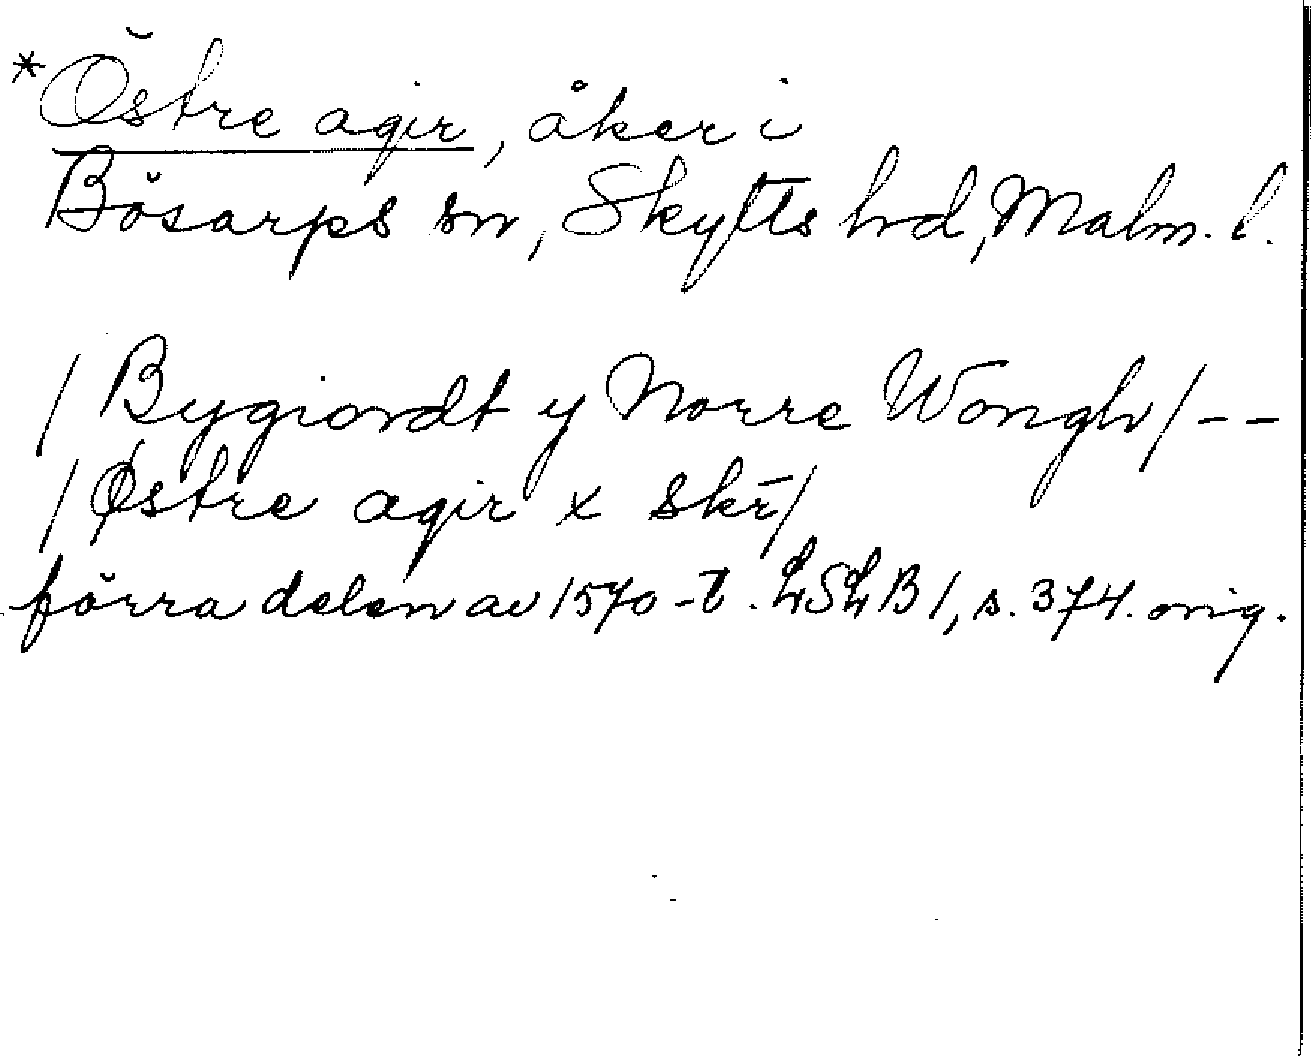 *Östre agir, åker i
Bösarps sn, Skytts hd, Malm. l.
/Bygiordt y Norre Wongh/--
/Østre agir x skr̄/
förra delen av 1570-t. LSLB 1, s. 374. orig.